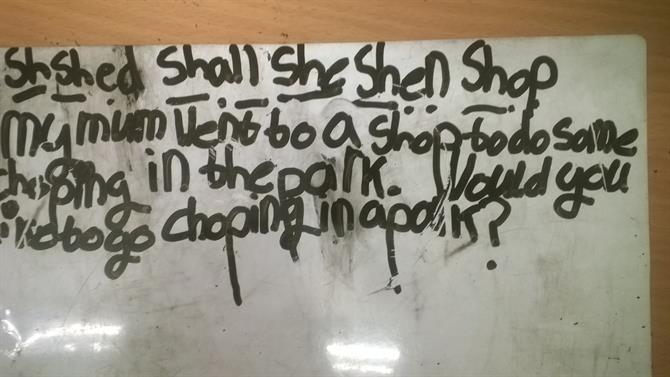 Sh Shed Shall She Shen Shop
My mum Went to a shop to do some
choping in the park. Would you
to go choping in a park?